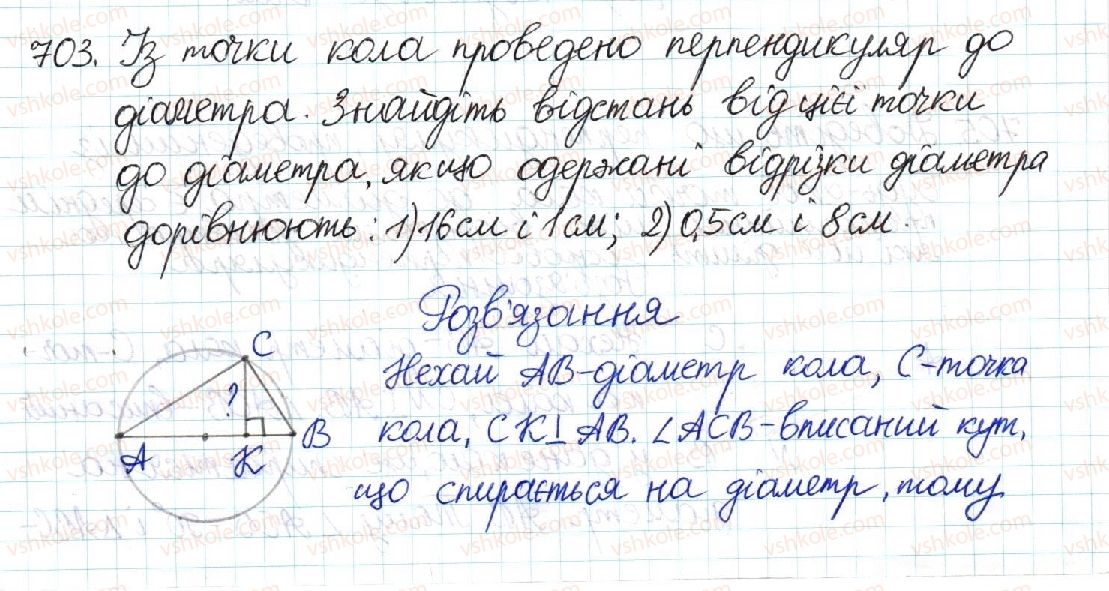 703. Із точки кола проведено перпендикуляр до
діаметра. Знайдіть відстань від цієї точки
до діаметра, якщо одержані відрізки діаметра
дорівнюють: 1) 16 см і 1 см; 2) 0,5 см і 8 см.
Розв'язання
C
?
A
K
B
Нехай AB-діаметр кола, C-точка
кола, CK⊥AB. ∠ACB-вписаний кут,
що спирається на діаметр, тому